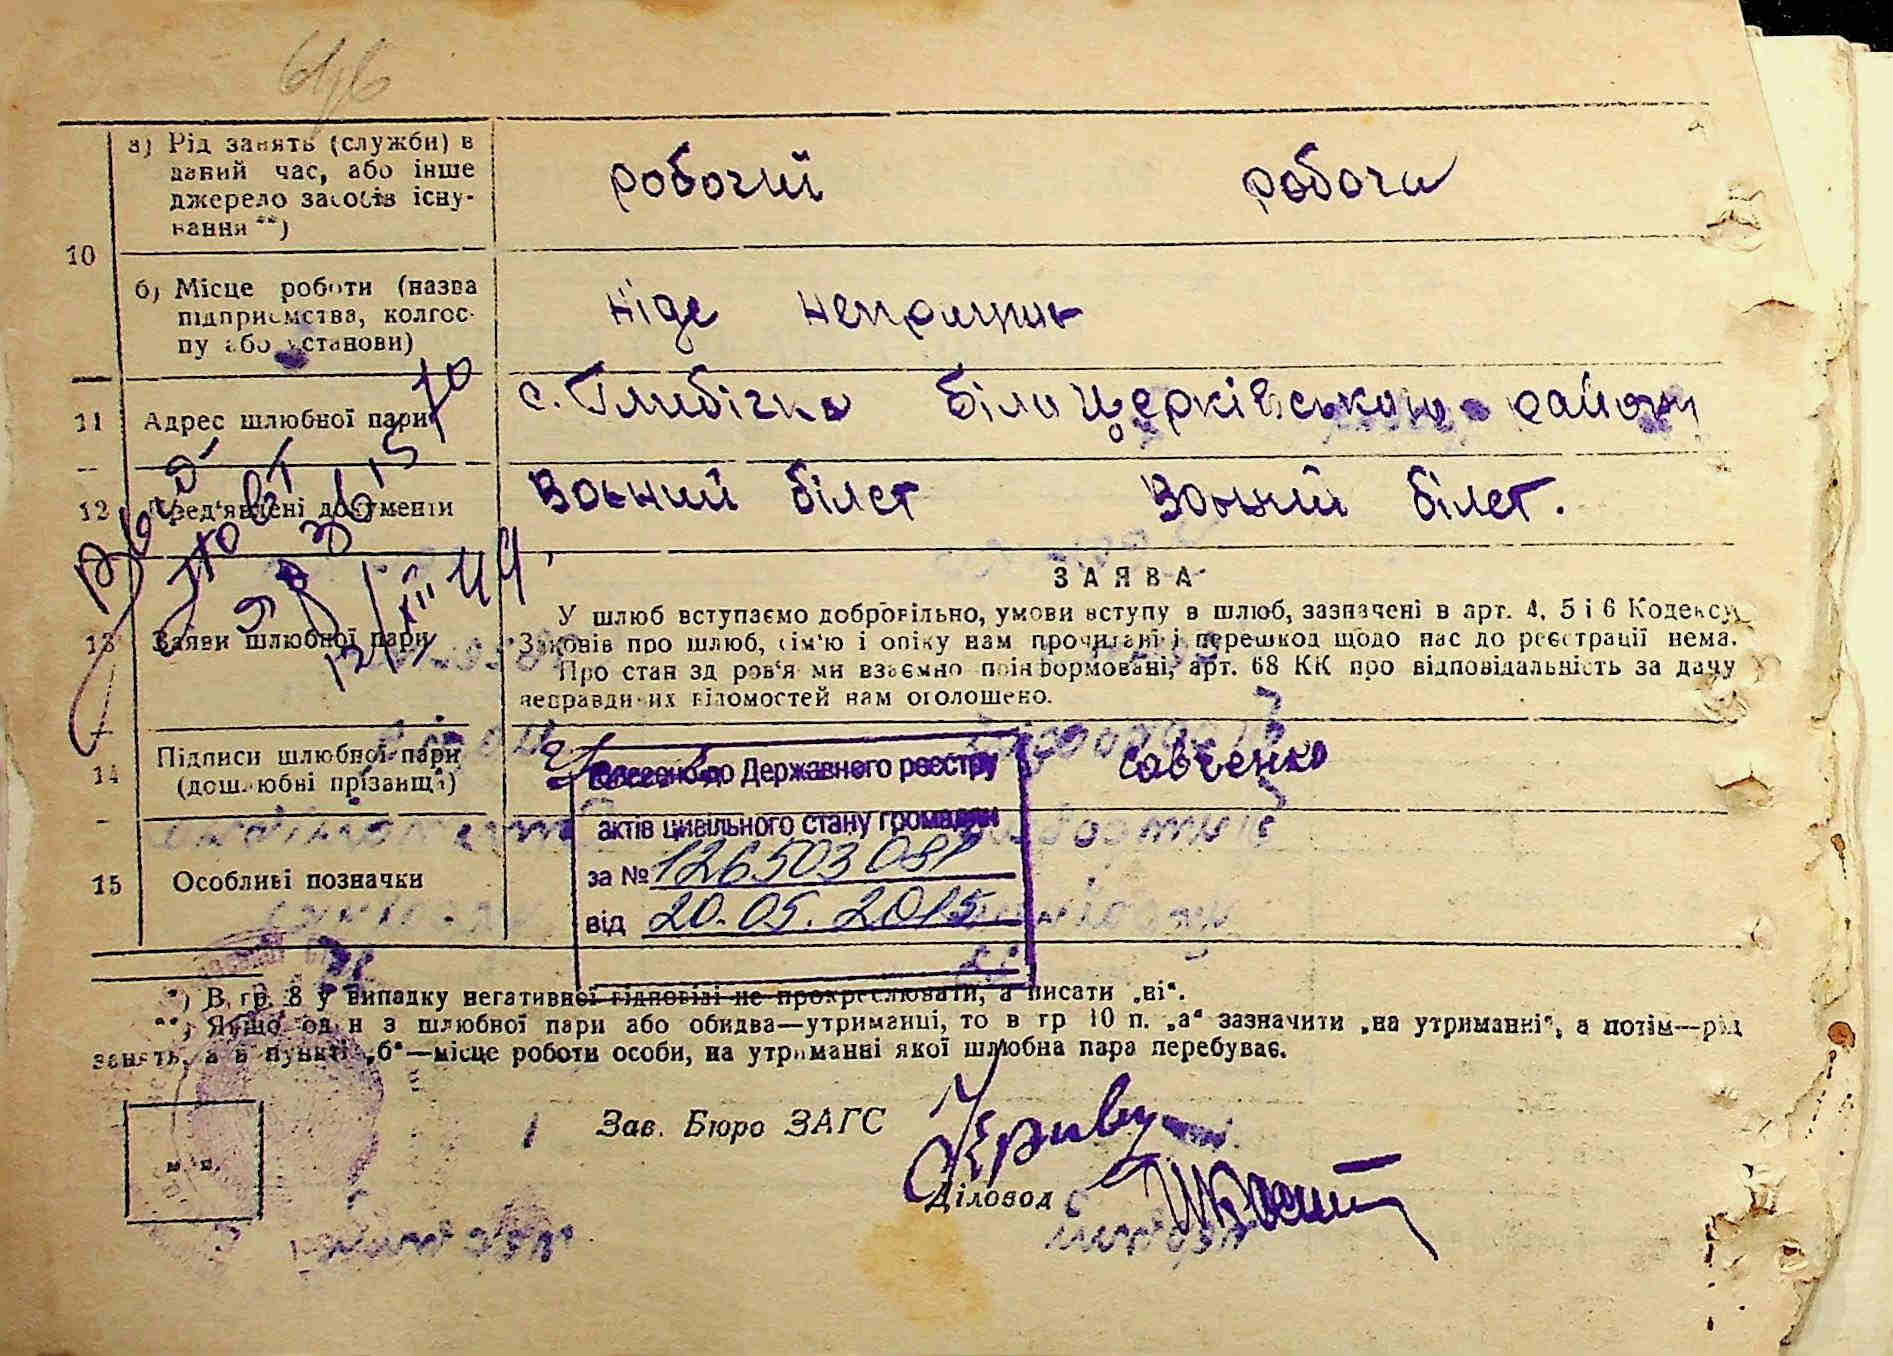 646
10
а) Рід занять (служби) в
даний час, або інше
джерело засобів існу-
вання **)
робочий робоча
б) Місце роботи (назва
підприємства, колгос-
пу або установи)
ніде непрацює
11
Адрес шлюбної пари
с. Глибічка Білоцерківського району
12
Пред'явлені документи
Воєний білет Воєний білет.
13
Заяви шлюбної пари
ЗАЯВА
У шлюб вступаємо добровільно, умови вступу в шлюб, зазначені в арт. 4, 5 і 6 Кодексу
Законів про шлюб, сім'ю і опіку нам прочитані і перешкод щодо нас до реєстрації нема.
Про стан здоров'я ми взаємно поінформовані, арт. 68 КК про відповідальність за дачу
неправдивих відомостей нам оголошено.
14
Підписи шлюбної пари
(дошлюбні прізвища)
Савченко
Внесено до Державного реєстру
актів цивільного стану громадян
за №
від 20.05.2015
15
Особливі позначки
*) В гр. 8 у випадку негативної відповіді не прокреслювати, а писати „ні“.
**) Якщо один з шлюбної пари або обидва—утриманці, то в гр 10 п. „а“ зазначити „на утриманні“, а потім—рід
занять, а в пункті „б“—місце роботи особи, на утриманні якої шлюбна пара перебуває.
м. п.
Зав. Бюро ЗАГС
Діловод